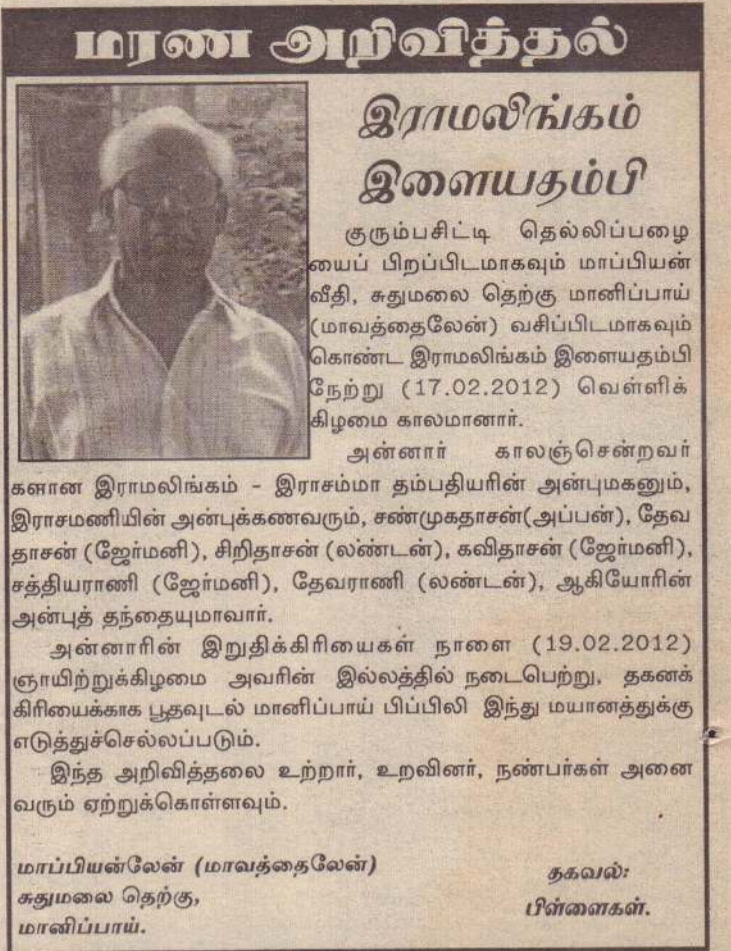 மரண அறிவித்தல்
இராமலிங்கம்
இளையதம்பி
குரும்பசிட்டி தெல்லிப்பழை
யைப் பிறப்பிடமாகவும் மாப்பியன்
வீதி, சுதுமலை தெற்கு மானிப்பாய்
(மாவத்தைலேன்) வசிப்பிடமாகவும்
கொண்ட இராமலிங்கம் இளையதம்பி
நேற்று (17.02.2012) வெள்ளிக்
கிழமை காலமானார்.
அன்னார் காலஞ்சென்றவர்
களான இராமலிங்கம் - இராசம்மா தம்பதியரின் அன்புமகனும்,
இராசமணியின் அன்புக்கணவரும், சண்முகதாசன்(அப்பன்), தேவ
தாசன் (ஜேர்மனி), சிறிதாசன் (லண்டன்), கவிதாசன் (ஜேர்மனி),
சத்தியராணி (ஜேர்மனி), தேவராணி (லண்டன்), ஆகியோரின்
அன்புத் தந்தையுமாவார்.
அன்னாரின் இறுதிக்கிரியைகள் நாளை (19.02.2012)
ஞாயிற்றுக்கிழமை அவரின் இல்லத்தில் நடைபெற்று, தகனக்
கிரியைக்காக பூதவுடல் மானிப்பாய் பிப்பிலி இந்து மயானத்துக்கு
எடுத்துச்செல்லப்படும்.
இந்த அறிவித்தலை உற்றார், உறவினர், நண்பர்கள் அனை
வரும் ஏற்றுக்கொள்ளவும்.
மாப்பியன்லேன் (மாவத்தைலேன்)
சுதுமலை தெற்கு,
மானிப்பாய்.
தகவல்:
பிள்ளைகள்.